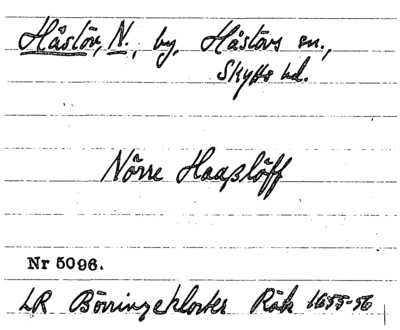 Håslöv, N., by, Håslövs sn.,
Skytts hd.
Nörre Haaßlöff
Nr 5096.
LR Börringekloster Räk 1655-56